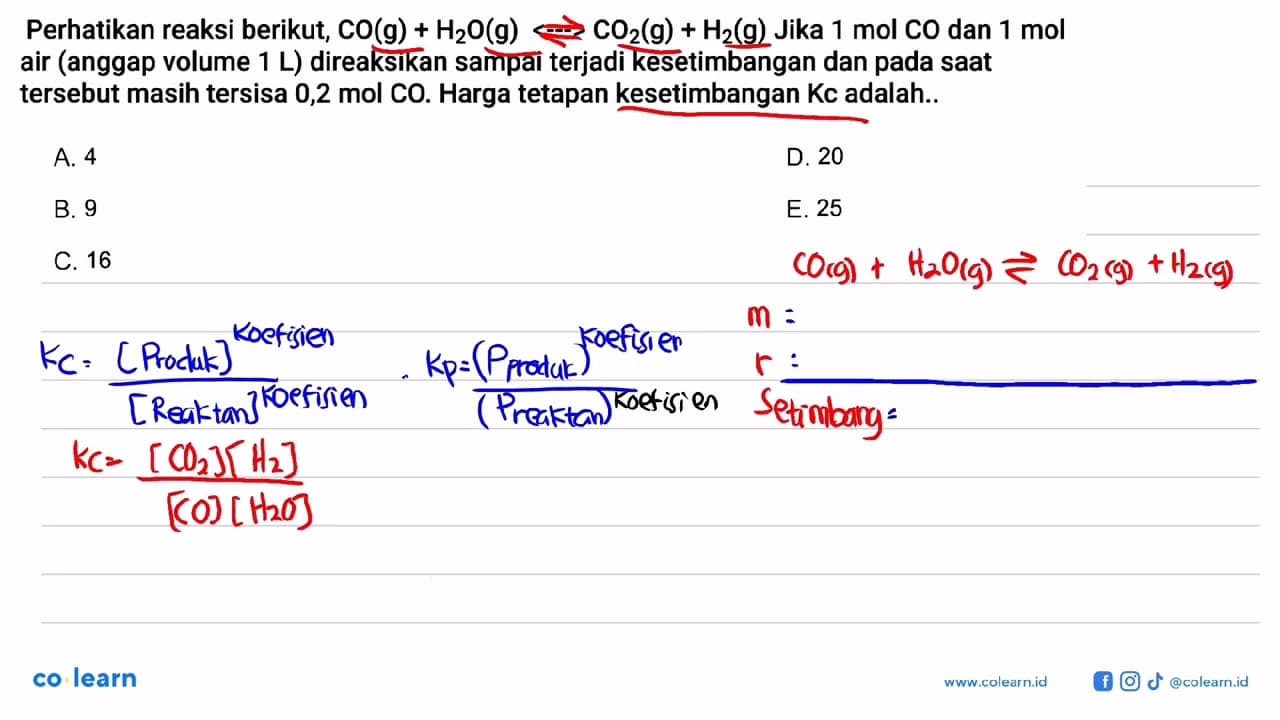 Perhatikan reaksi berikut, CO(g) + H₂O(g) <---> CO₂(g) + H₂(g) Jika 1 mol CO dan 1 mol
air (anggap volume 1 L) direaksikan sampai terjadi kesetimbangan dan pada saat
tersebut masih tersisa 0,2 mol CO. Harga tetapan kesetimbangan Kc adalah..
A. 4
B. 9
C. 16
D. 20
E. 25
CO(g) + H₂O(g) ⇌ CO₂(g) + H₂(g)
m =
r :
Setimbang =
Kc = [Produk]^Koefisien
[Reaktan]^Koefisien
Kp = (P produk)^Koefisien
(Preaktan)^Koefisien
Kc = [CO₂][H₂]
[CO][H₂O]
co learn
www.colearn.id
@colearn.id